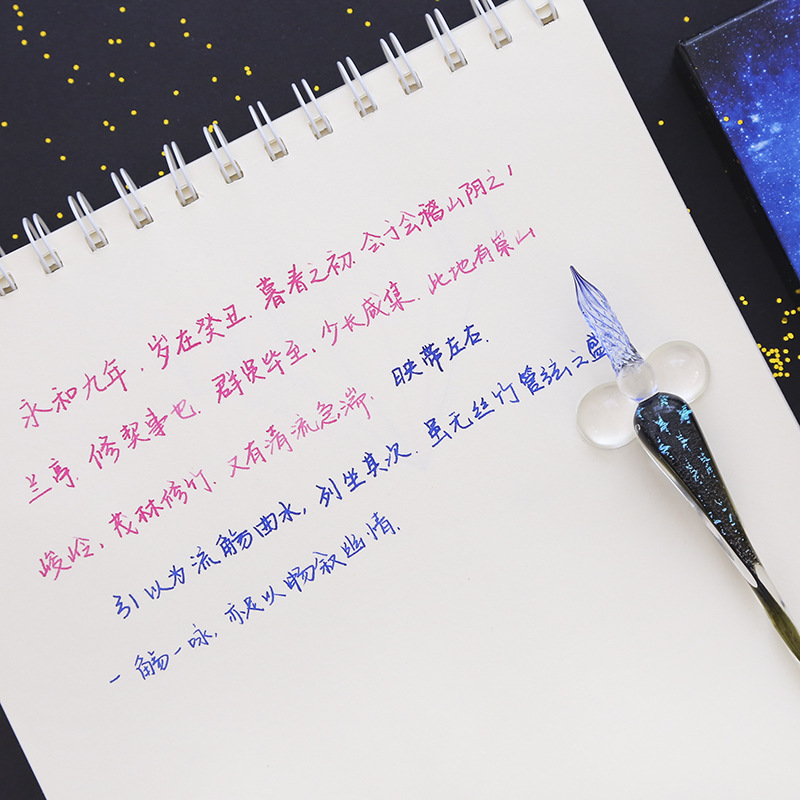 永和九年,岁在癸丑.暮春之初,会于会稽山阴之
兰亭.修契事也.群贤毕至,少长咸集.此地有崇山
峻岭,茂林修竹.又有清流急湍.映带左右.
引以为流觞曲水,列坐其次.虽无丝竹管弦之盛
一觞一咏,亦足以畅叙幽情.